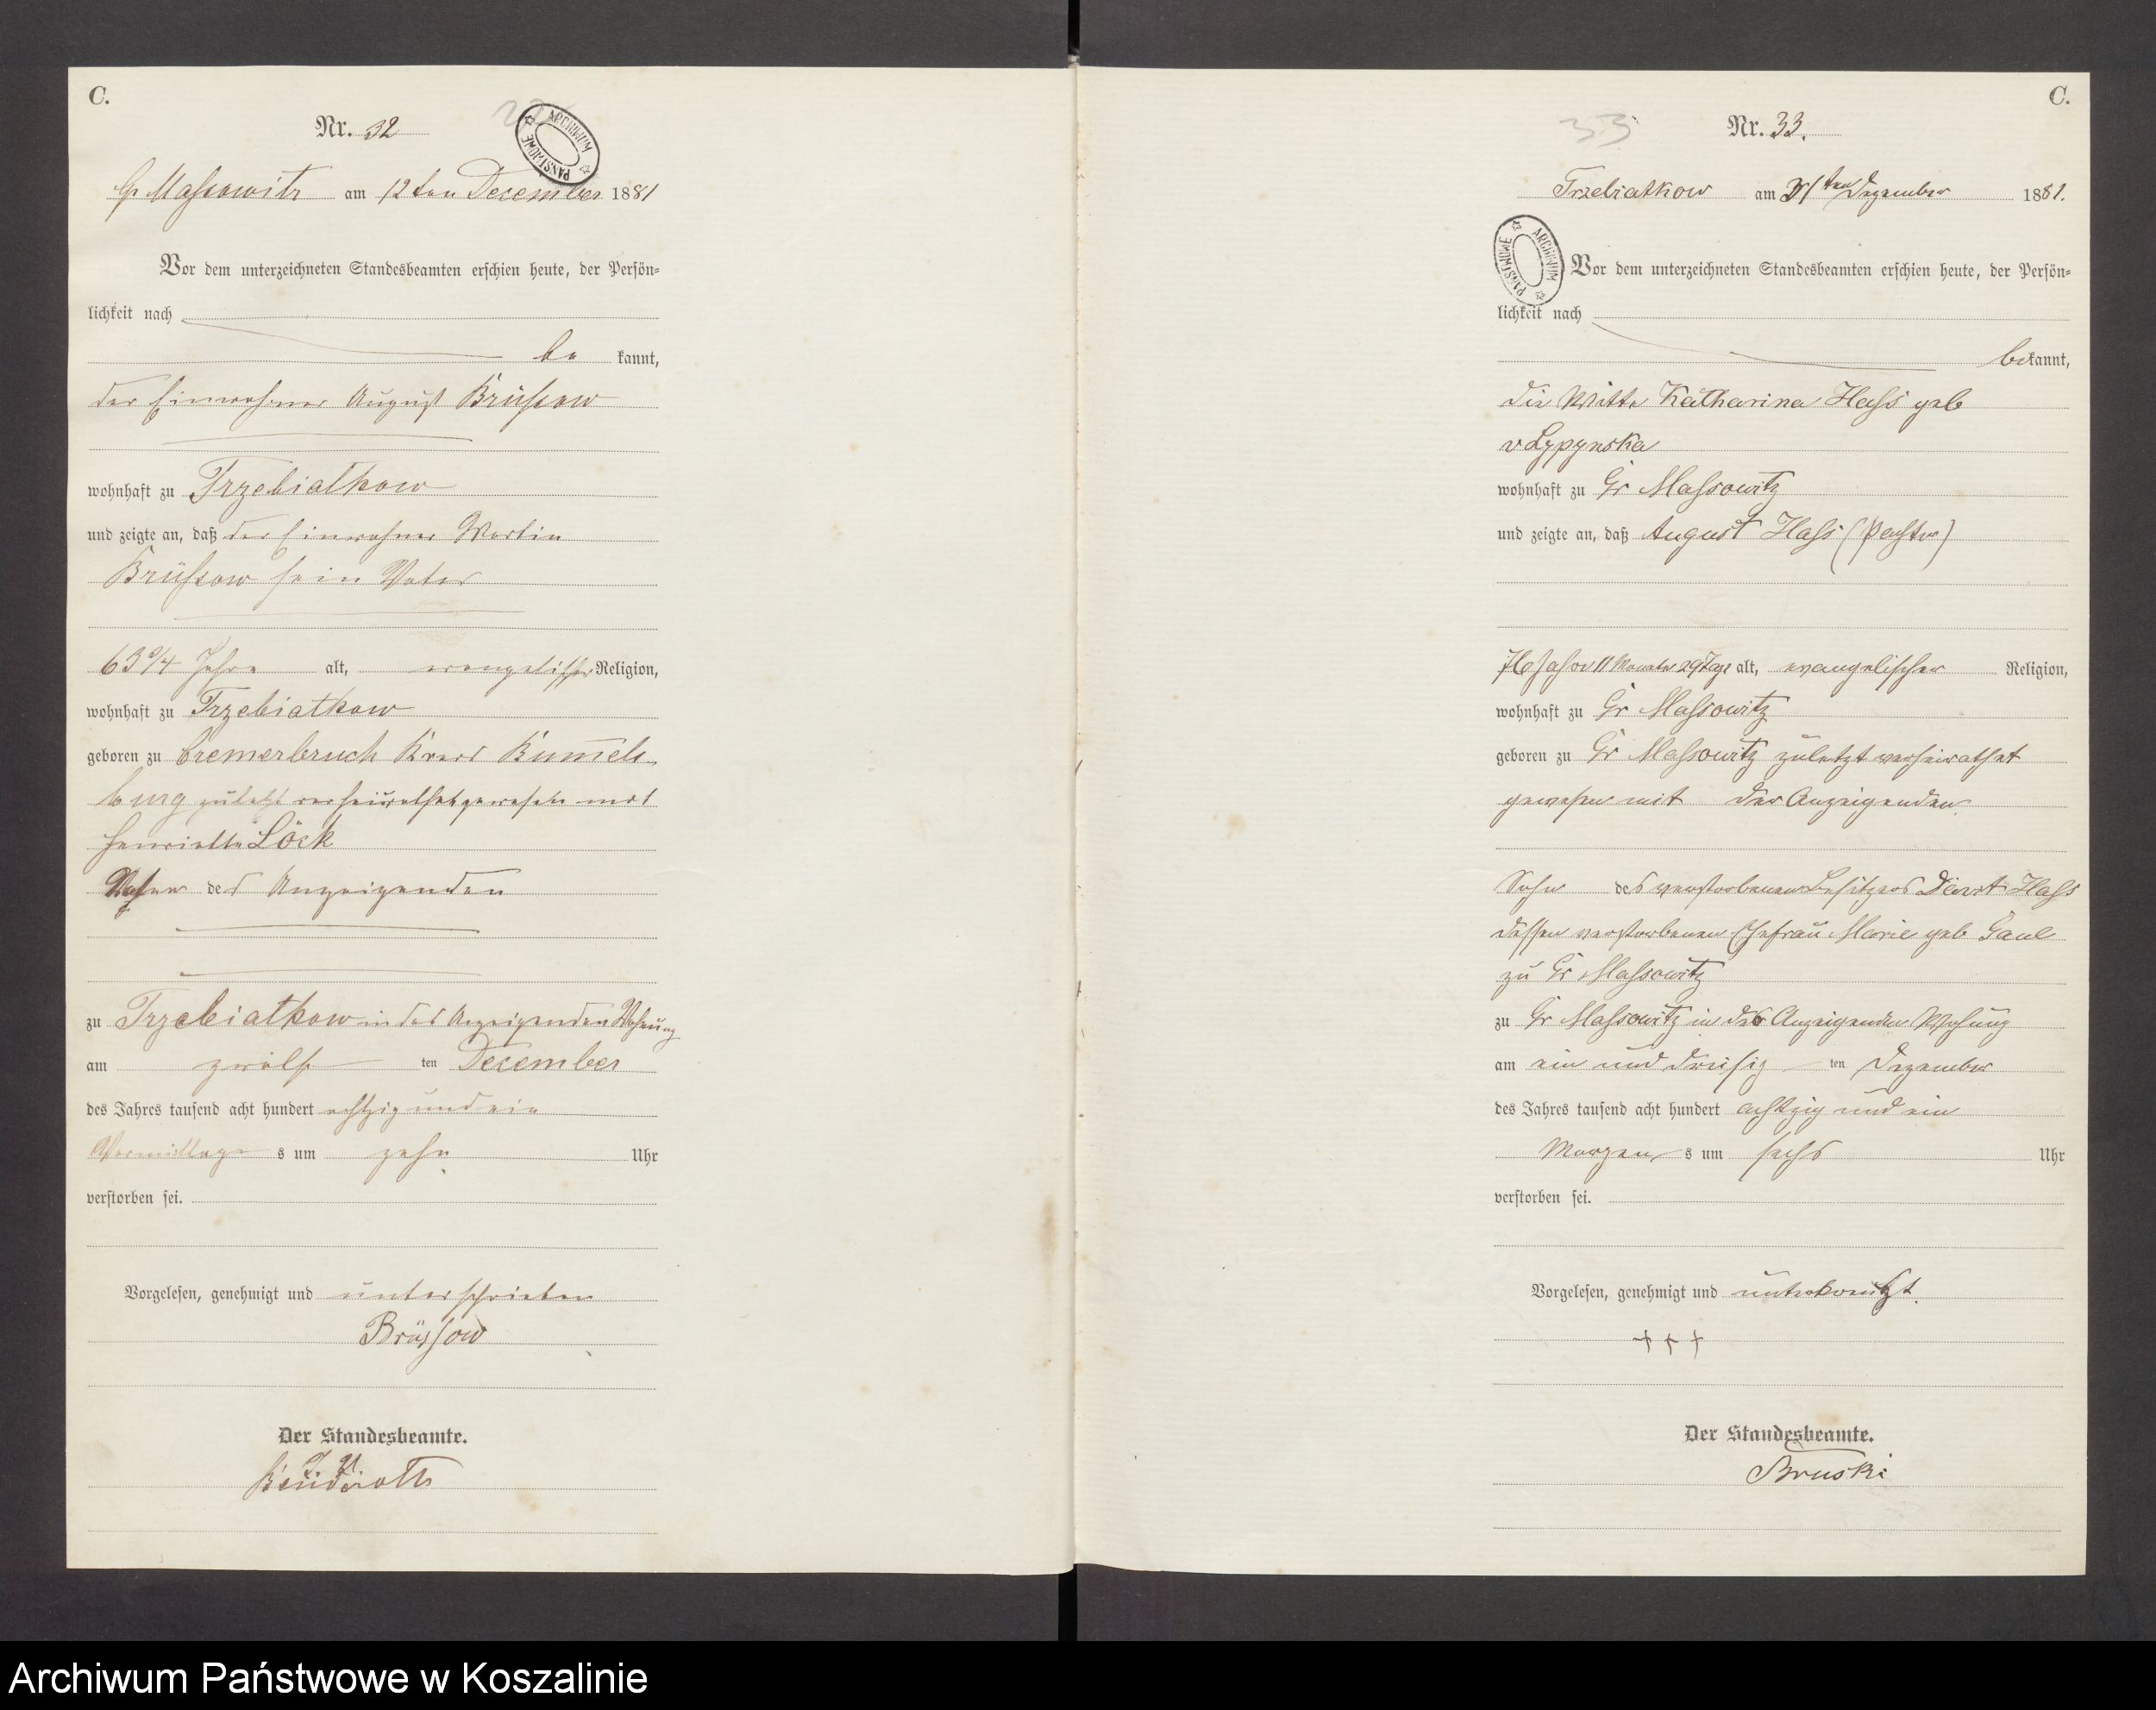 C.
Nr. 32
ARCHIWUM PAŃSTWOWE
Gr Massowitz am 12ten December 1881
Vor dem unterzeichneten Standesbeamten erschien heute, der Persön-
lichkeit nach
be kannt,
der Einwohner August Brüssow
wohnhaft zu Trzebiatkow
und zeigte an, daß der Einwohner Martin
Brüssow sein Vater
63 3/4 Jahre alt, evangelischer Religion,
wohnhaft zu Trzebiatkow
geboren zu Cremerbruch Kreis Rummels-
burg zuletzt verheirathet gewesen mit
Henriette Löck
des Anzeigenden
zu Trzebiatkow in des Anzeigenden Wohnung
am zwölf ten December
des Jahres tausend acht hundert achtzig und ein
Vormittag s um zehn Uhr
verstorben sei.
Vorgelesen, genehmigt und unterschrieben
Brüssow
Der Standesbeamte.
C.
33 Nr. 33.
Trzebiatkow am 31ten Dezember 1881.
ARCHIWUM PAŃSTWOWE
Vor dem unterzeichneten Standesbeamten erschien heute, der Persön-
lichkeit nach
bekannt,
die Witte Katharina Hass geb
v Lypynska
wohnhaft zu Gr Massowitz
und zeigte an, daß August Hass (Pachter)
76 Jahre 11 Monate 29 Tage alt, evangelischer Religion,
wohnhaft zu Gr Massowitz
geboren zu Gr Massowitz zuletzt verheirathet
gewesen mit der Anzeigenden
Sohn des verstorbenen Besitzers Hass
dessen verstorbenen Ehefrau Marie geb Gaul
zu Gr Massowitz
zu Gr Massowitz in der Anzeigenden Wohnung
am ein und dreisig ten Dezember
des Jahres tausend acht hundert achtzig und ein
Morgen s um sechs Uhr
verstorben sei.
Vorgelesen, genehmigt und unterkreuzt.
+ + +
Der Standesbeamte.
Bruski
Archiwum Państwowe w Koszalinie